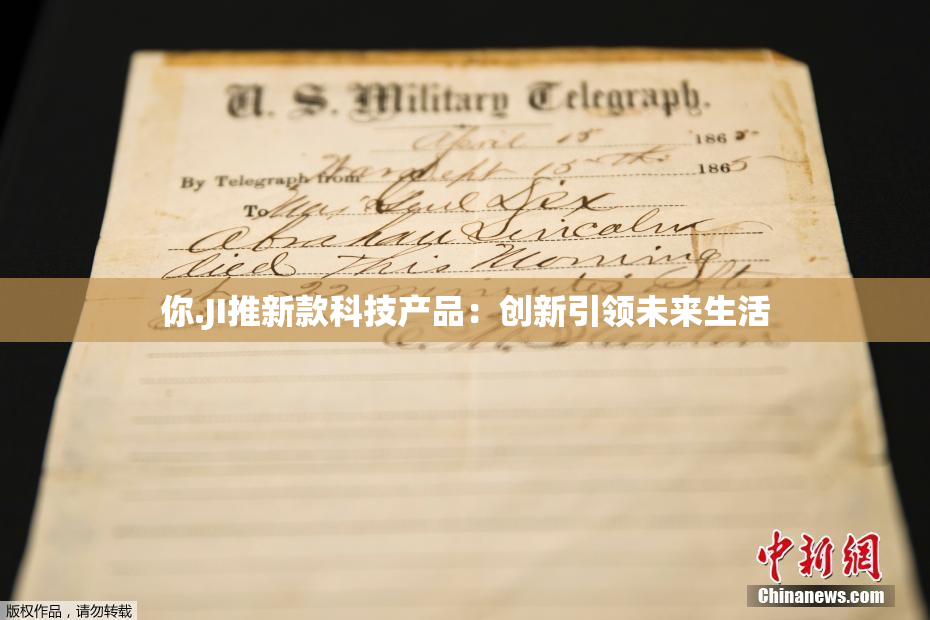 U. S. Military Telegraph.
April 15 1865
By Telegraph from War Dept 15th 1865
To Maj Genl Dix
Abraham Lincoln
died This Morning
at 22 minutes after
你.JI推新款科技产品：创新引领未来生活
E. M. Stanton
中新網
Chinanews.com
版权作品，请勿转载